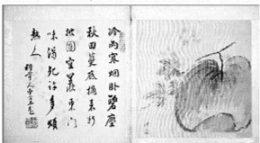 冷雨寒烟卧碧塵
秋田蔓底摘來新
披圖空羨東門
味渴死許多煩
熱人